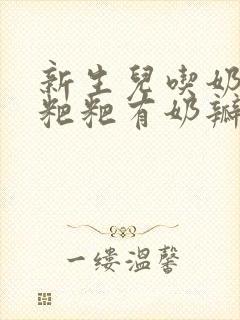 新生兒喫奶
粑粑有奶瓣
一缕温馨